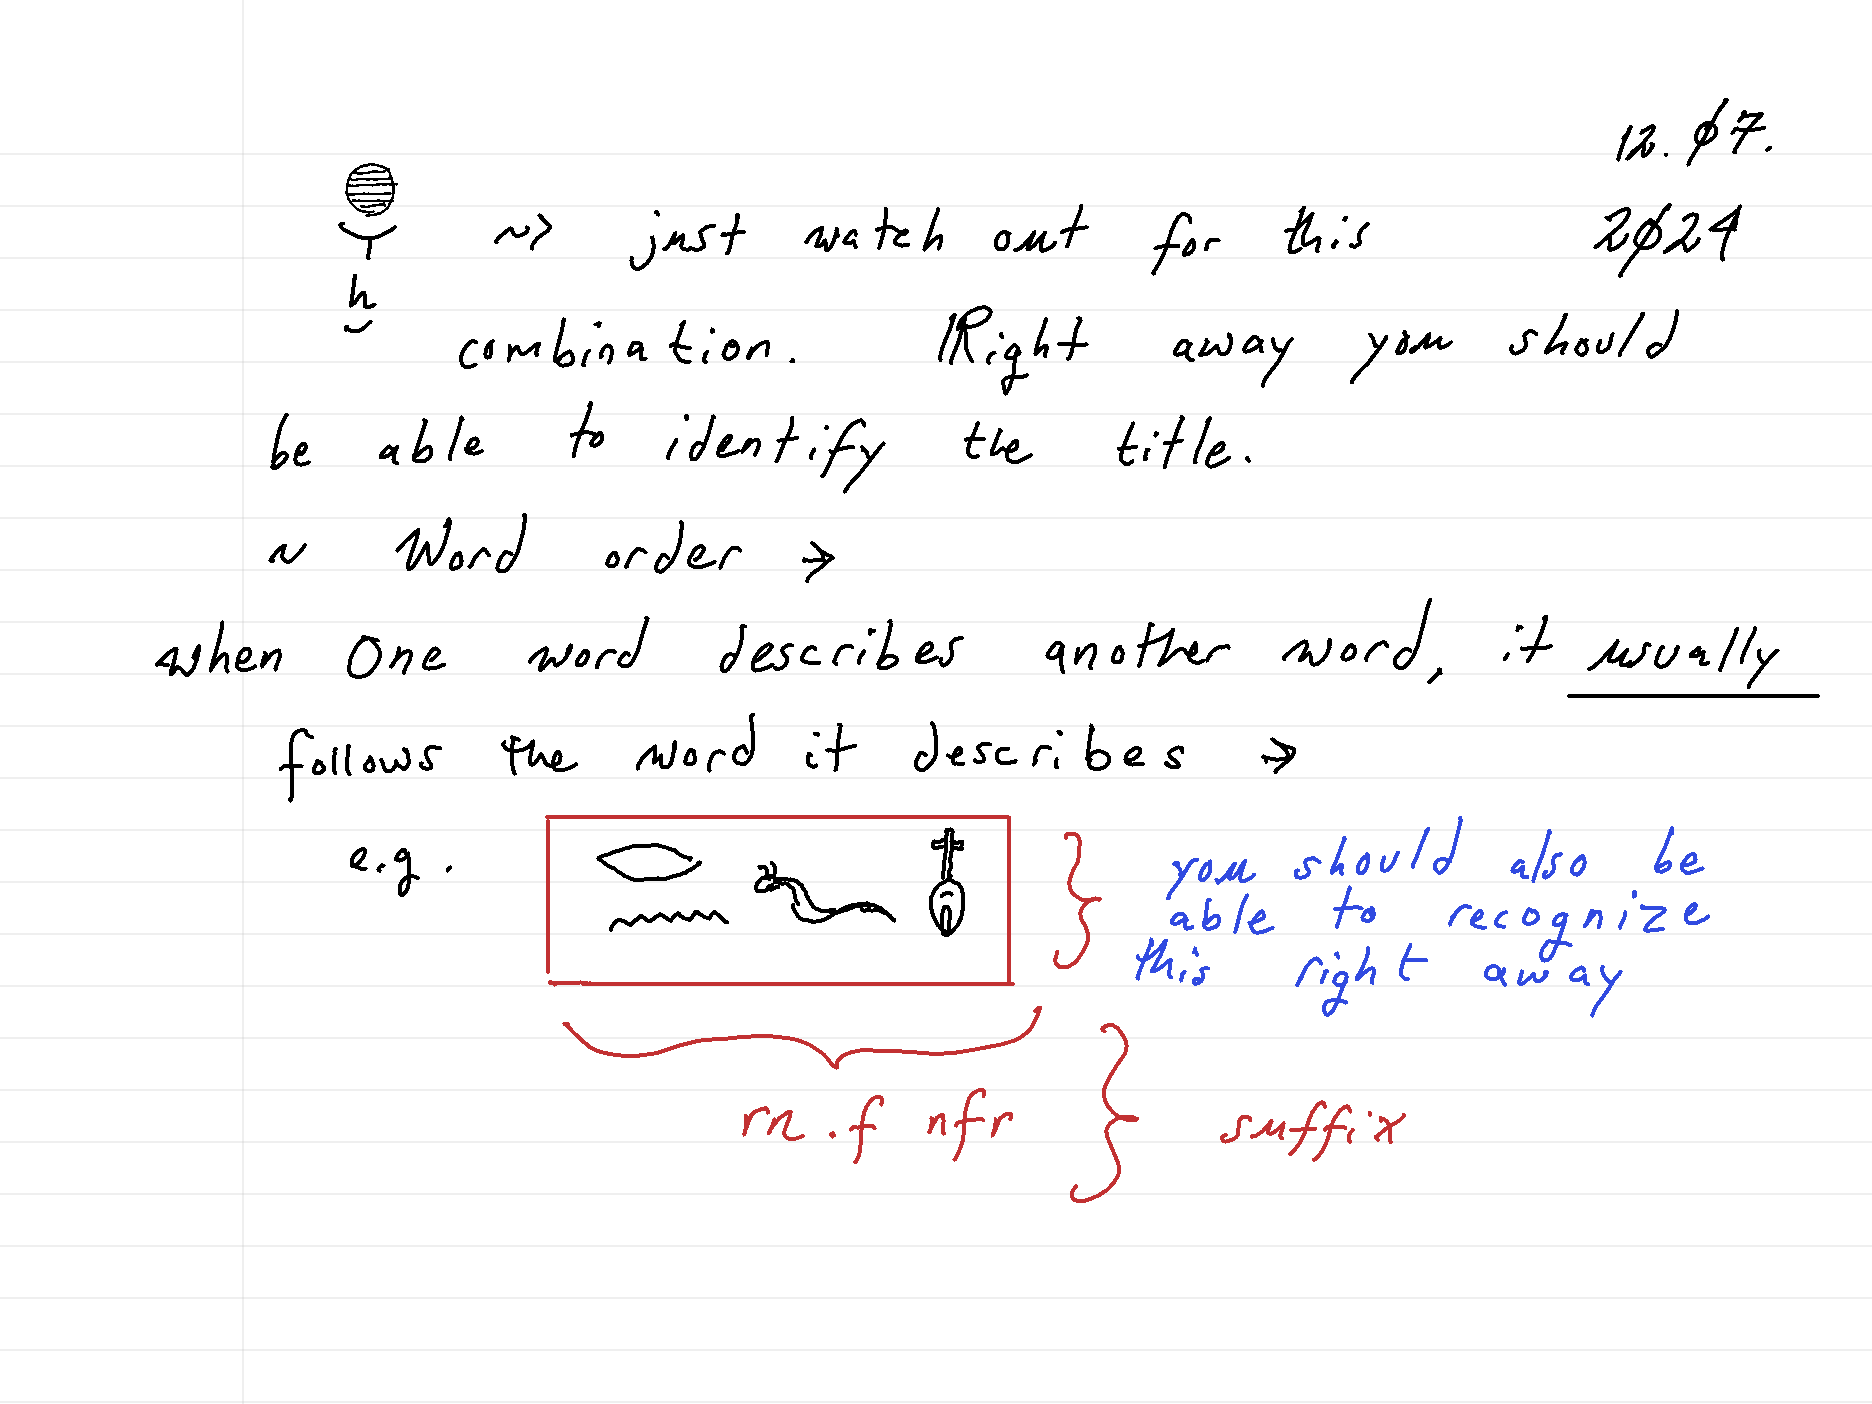 12. 07.
~> just watch out for this 2024
ḫ
combination. Right away you should
be able to identify the title.
~ Word order →
when One word describes another word, it usually
follows the word it describes →
e.g. 𓂋𓈖𓆑𓄤
you should also be
able to recognize
this right away
rn.f nfr
suffix